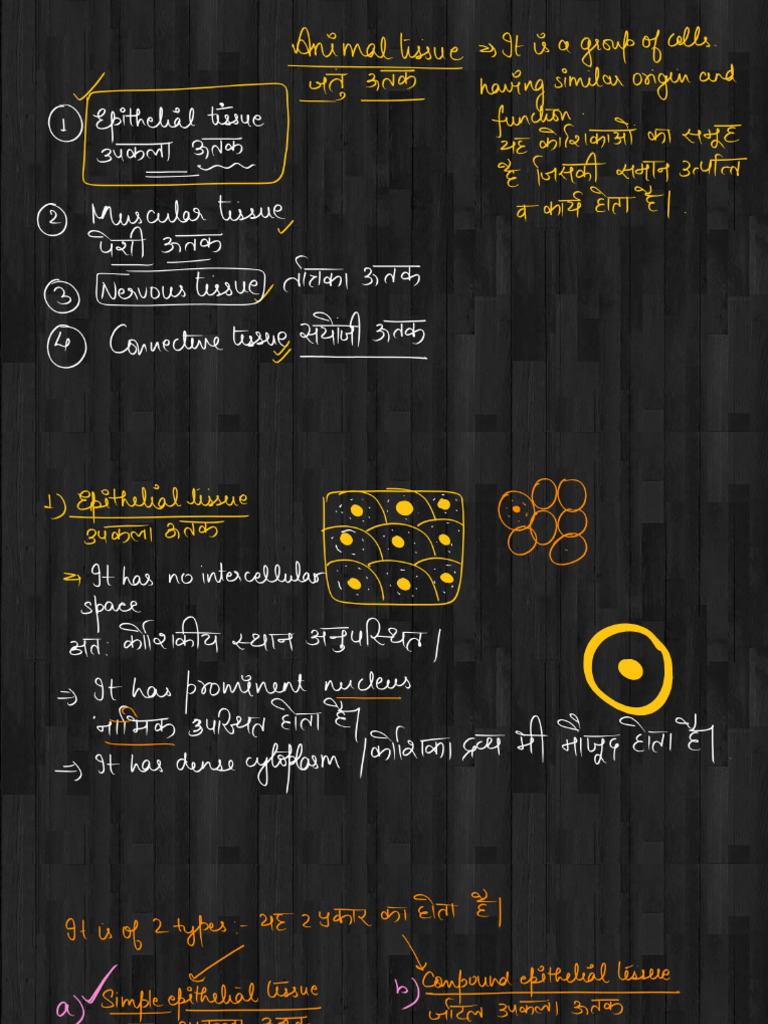 Animal tissue ⇒ It is a group of cells.
जंतु ऊतक
having similar origin and
function.
यह कोशिकाओं का समूह
है जिसकी समान उत्पत्ति
व कार्य होता है।
① Epithelial tissue
उपकला ऊतक
② Muscular tissue
पेशी ऊतक
③ Nervous tissue, तंत्रिका ऊतक
④ Connective tissue संयोजी ऊतक
1) Epithelial tissue
उपकला ऊतक
⇒ It has no intercellular
space
अतः कोशिकीय स्थान अनुपस्थित।
⇒ It has prominent nucleus
नाभिक उपस्थित होता है।
⇒ It has dense cytoplasm । कोशिका द्रव्य भी मौजूद होता है।
It is of 2 types:- यह 2 प्रकार का होता है।
a) Simple epithelial tissue
उपकला ऊतक
b) Compound epithelial tissue
जटिल उपकला ऊतक